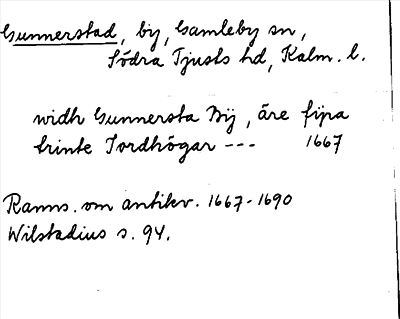 Gunnerstad, by, Gamleby sn,
Södra Tjusts hd, Kalm. l.
widh Gunnersta Bÿ, äre fÿra
trinte Jordhögar --- 1667
Ranns. om antikv. 1667-1690
Wilstadius s. 94.